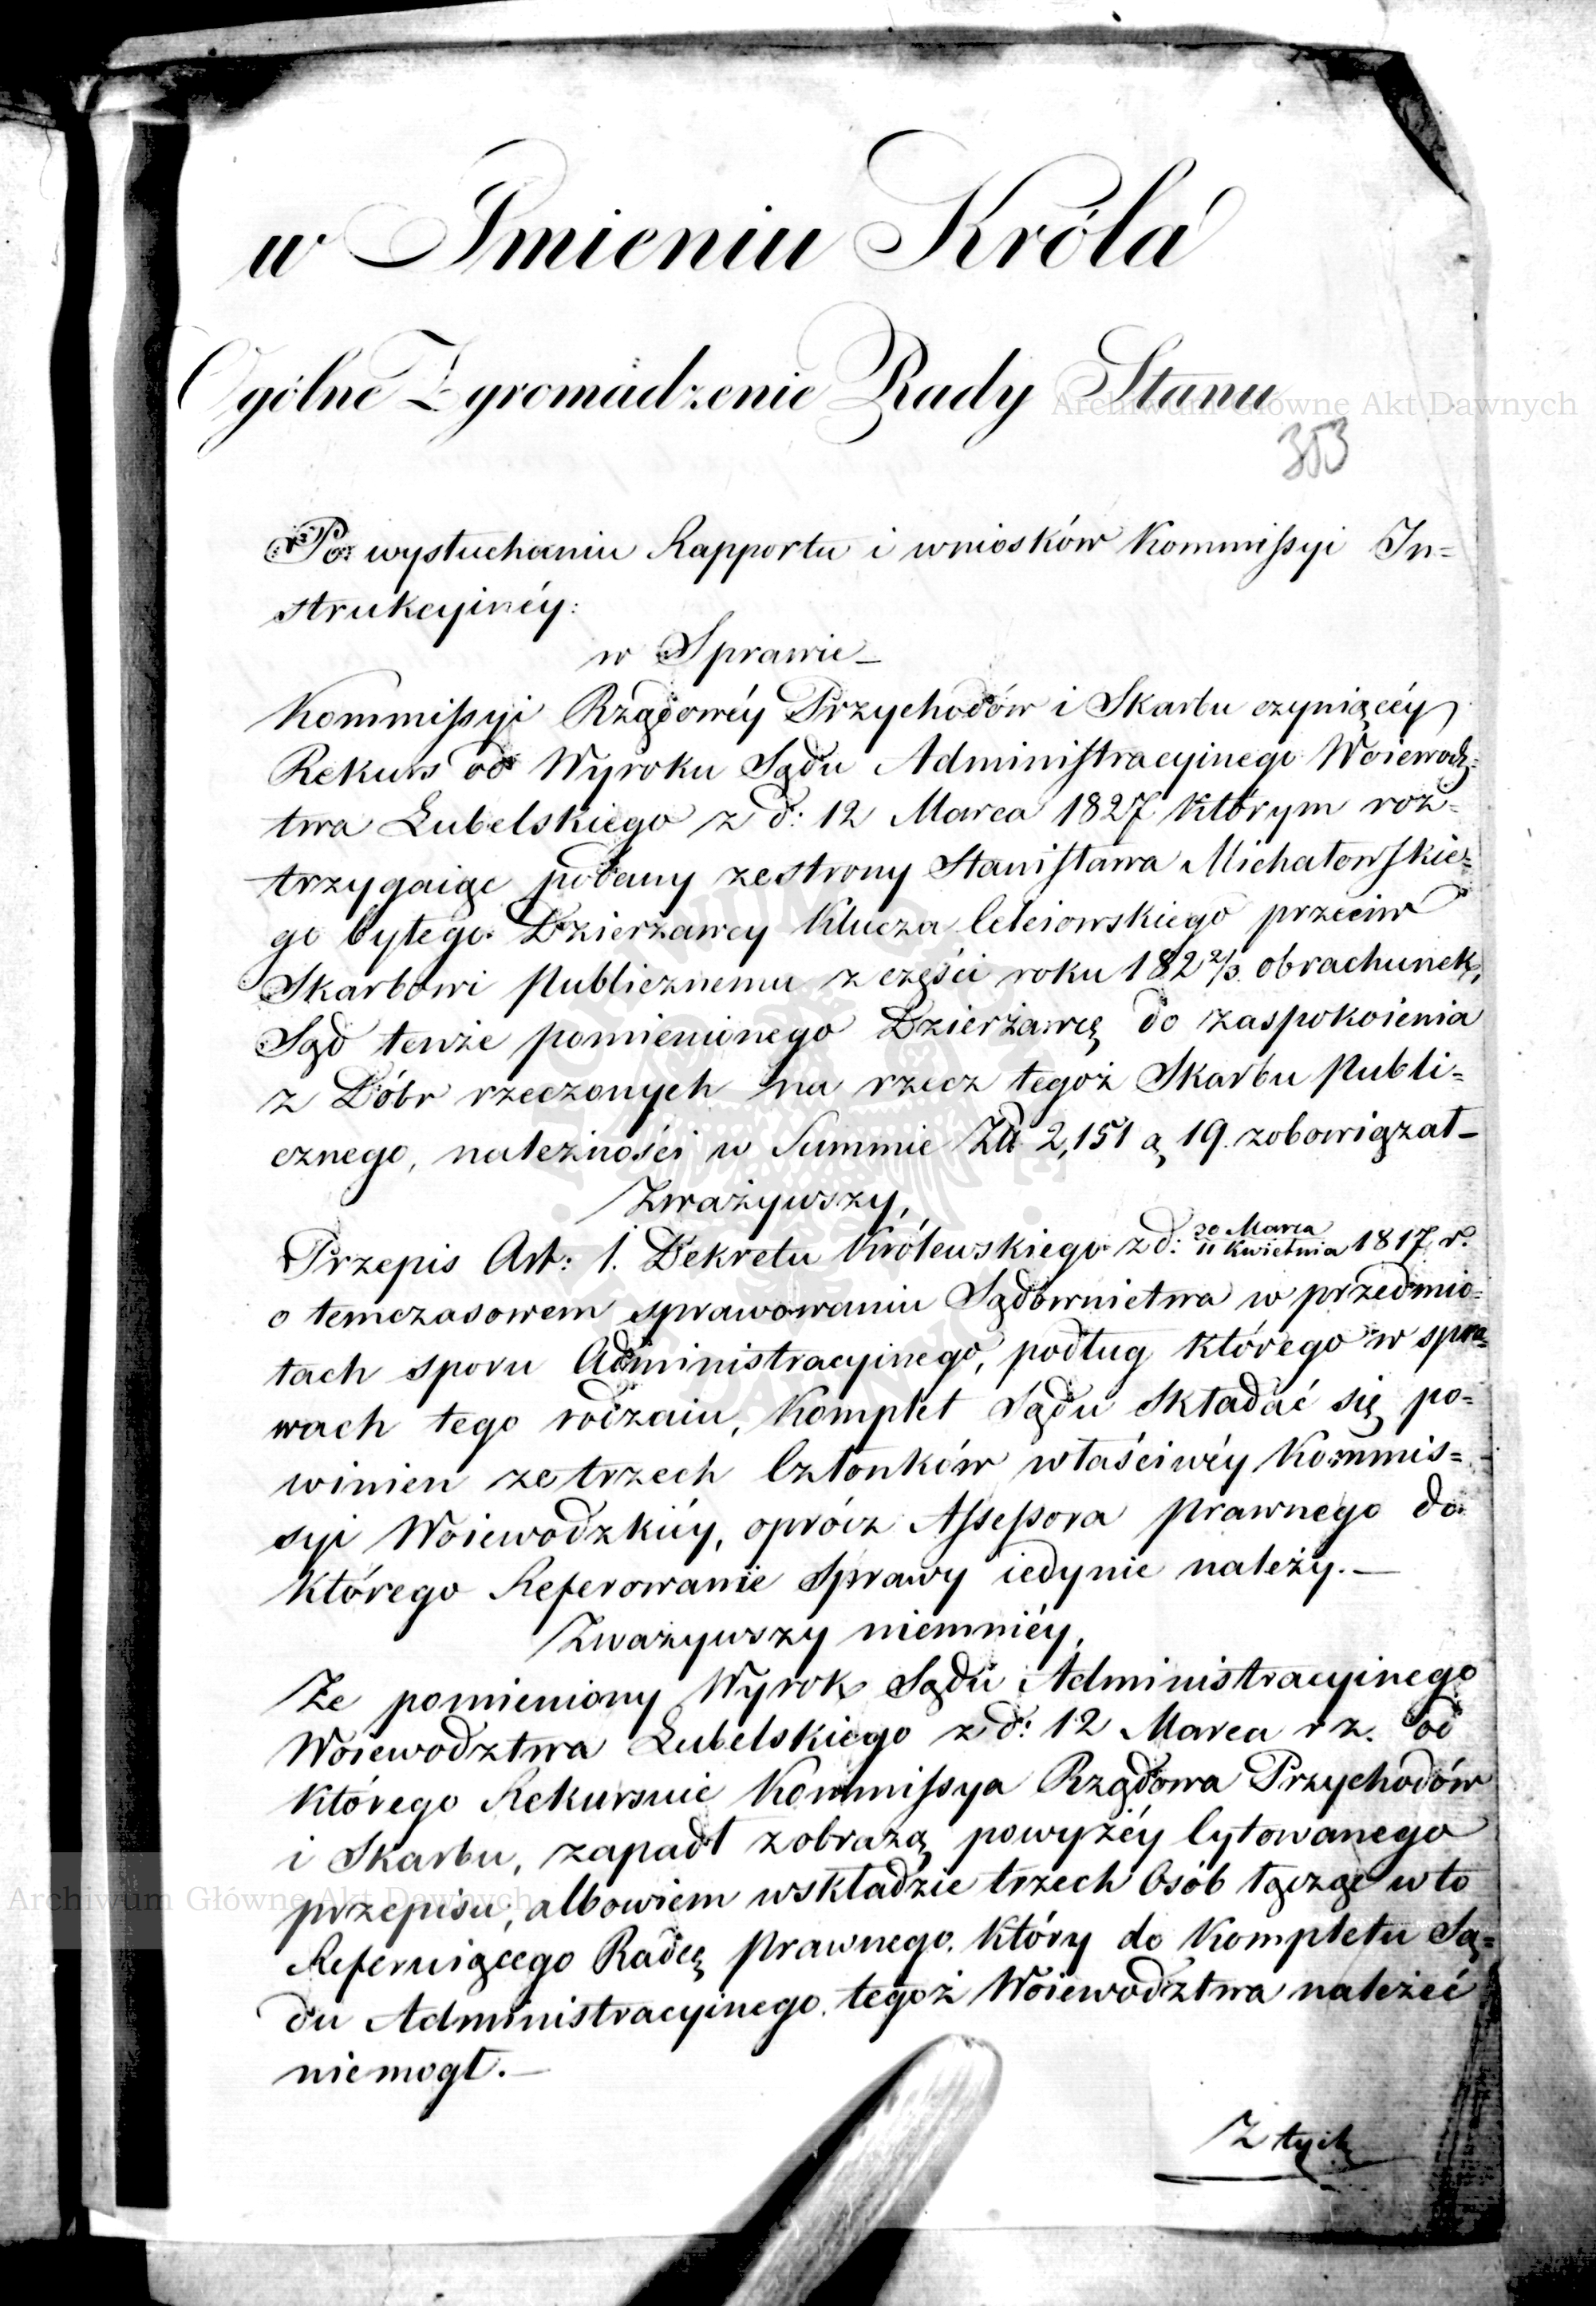 w Imieniu Króla
Ogólne Zgromadzenie Rady Stanu
Archiwum Główne Akt Dawnych
353
Po wysłuchaniu Rapportu i wniosków Kommissyi In=
strukcyinéy:
w Sprawie _
Kommissyi Rządowéy Przychodów i Skarbu czyniącéy
Rekurs od Wyroku Sądu Administracyinego Woiewodz=
twa Lubelskiego z d: 12 Marca 1827 którym roz=
trzygaiąc podany ze strony Stanisława Michałowskie=
go byłego Dzierżawcy Klucza Celeiowskiego przeciw
Skarbowi Publicznemu z części roku 182 2/3. obrachunek,
Sąd tenże pomienionego Dzierżawcę do zaspokoienia
z Dóbr rzeczonych na rzecz tegoż Skarbu Publi=
cznego, należności w Summie Złł 2,151 g 19. zobowiązał _
Zważywszy,
Przepis Art: 1. Dekretu Królewskiego z d: 30 Marca / 11 Kwietnia 1817 r.
o temczasowem sprawowaniu Sądownictwa w przedmio=
tach sporu Administracyinego, podług którego w spra=
wach tego rodzaiu, Komplet Sądu składać się po=
winien ze trzech Członków właściwéy Kommis=
syi Woiewodzkiéy, oprócz Assessora Prawnego do
którego Referowanie Sprawy iedynie należy. —
Zważywszy niemniéy,
Że pomieniony Wyrok Sądu Administracyinego
Woiewodztwa Lubelskiego z d: 12 Marca r z. od
którego Rekursuie Kommissya Rządowa Przychodów
i Skarbu, zapadł z obrazą powyżéy Cytowanego
przepisu, albowiem w składzie trzech Osób łącząc w to
Referuiącego Radcę Prawnego, który do Kompletu Są=
du Administracyinego tegoż Woiewodztwa należeć
niemogł. —
Z tych
Archiwum Główne Akt Dawnych